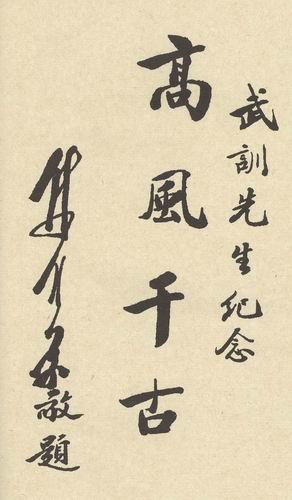 武訓先生紀念
髙風千古
敬題